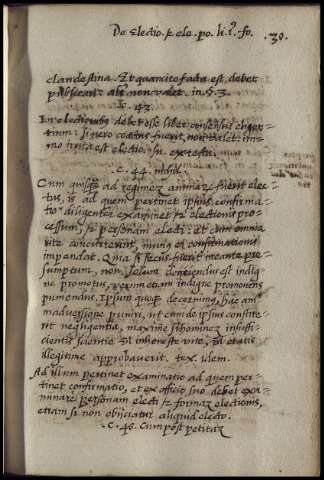 De Electio. & ele. po. li. fo. 30.
clandestina. Et quancito facta est debet
publicari als non valet. in §. 3.
C. 43.
In electionibus debet esse liber consensus eligen-
tium: Si vero coactus fuerit, non valet: im-
mo irrita est electio. in. ex textu.
C. 44. nihil.
Cum quisque ad regimen animarum fuerit elec-
tus, is ad quem pertinet ipsius confirma-
tio diligenter examinet & electionis pro-
cessum, & personam electi: et cum omnia
rite concurrerint, munus ei confirmationis
impendat. Quia si secus fuerit incaute pre-
sumptum, non solum deijciendus est indig-
ne promotus, verum etiam indigne promovens
puniendus. Ipsum quoque decernimus hac ani-
madversione puniri, ut cum de ipsius constite-
rit negligentia, maxime si hominem insuffi-
cientis scientie vel inhoneste vite, vel etatis
illegitime approbaverit. tex. idem.
Ad illum pertinet examinatio ad quem per-
tinet confirmatio, et ex officio suo debet exa-
minare personam electi & formam electionis,
etiam si non obijciatur aliquid electo.
C. 46. Cum post petitam